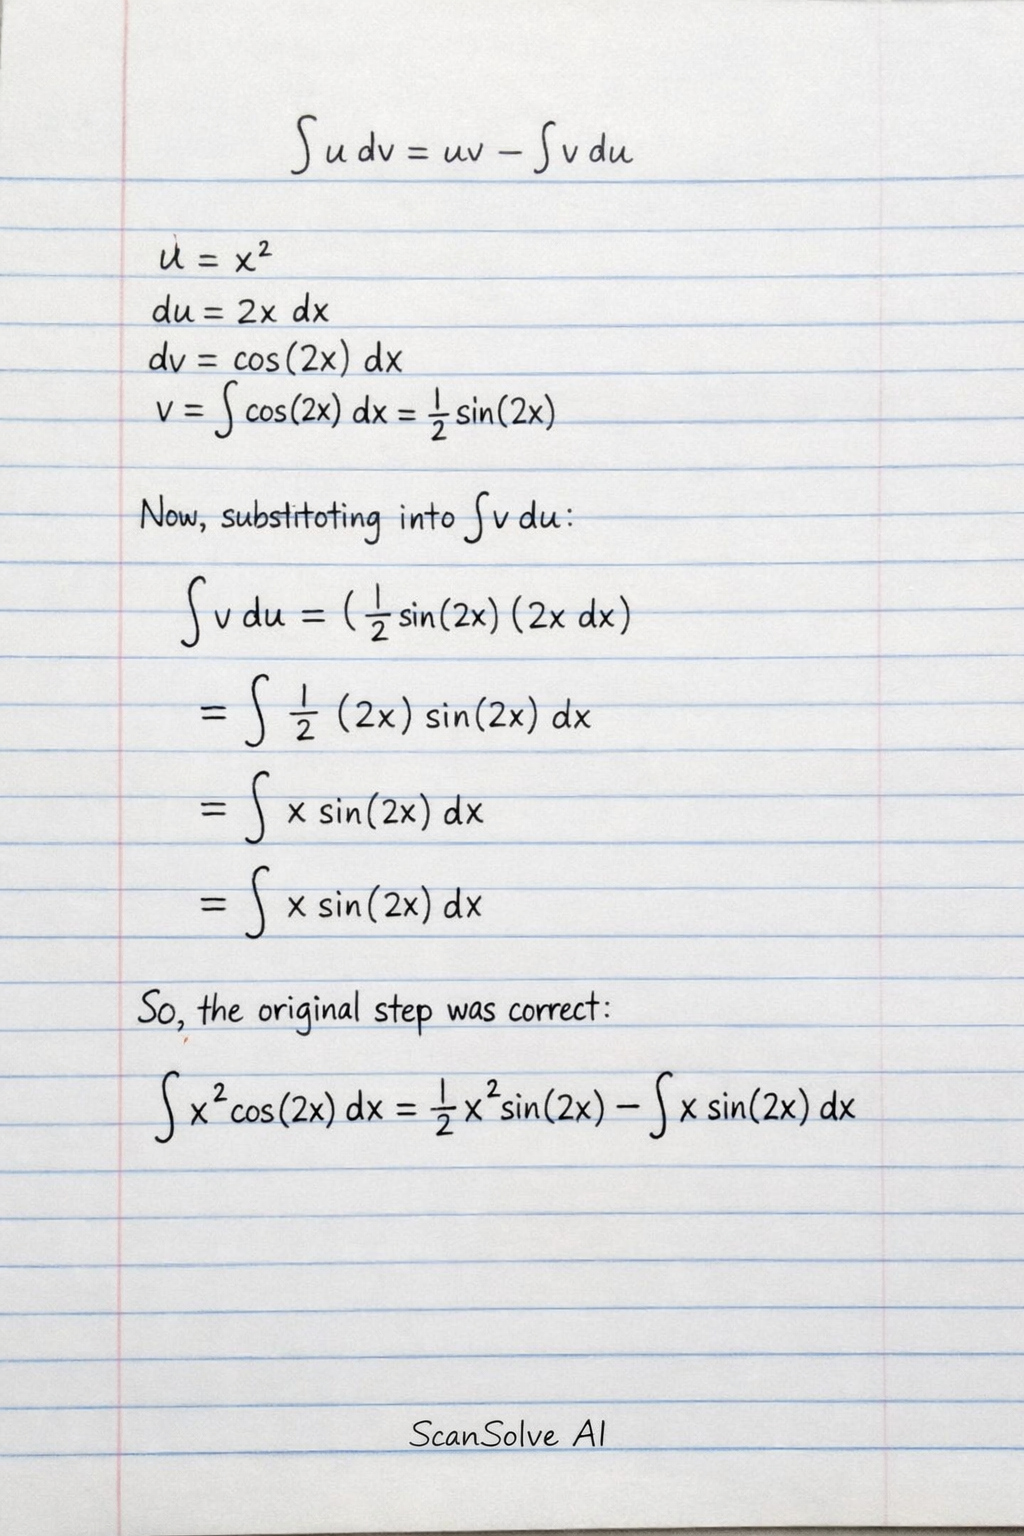 ∫ u dv = uv − ∫ v du
u = x²
du = 2x dx
dv = cos(2x) dx
v = ∫ cos(2x) dx = 1/2 sin(2x)
Now, substitoting into ∫ v du:
∫ v du = (1/2 sin(2x) (2x dx)
= ∫ 1/2 (2x) sin(2x) dx
= ∫ x sin(2x) dx
= ∫ x sin(2x) dx
So, the original step was correct:
∫ x² cos(2x) dx = 1/2 x² sin(2x) − ∫ x sin(2x) dx
ScanSolve AI